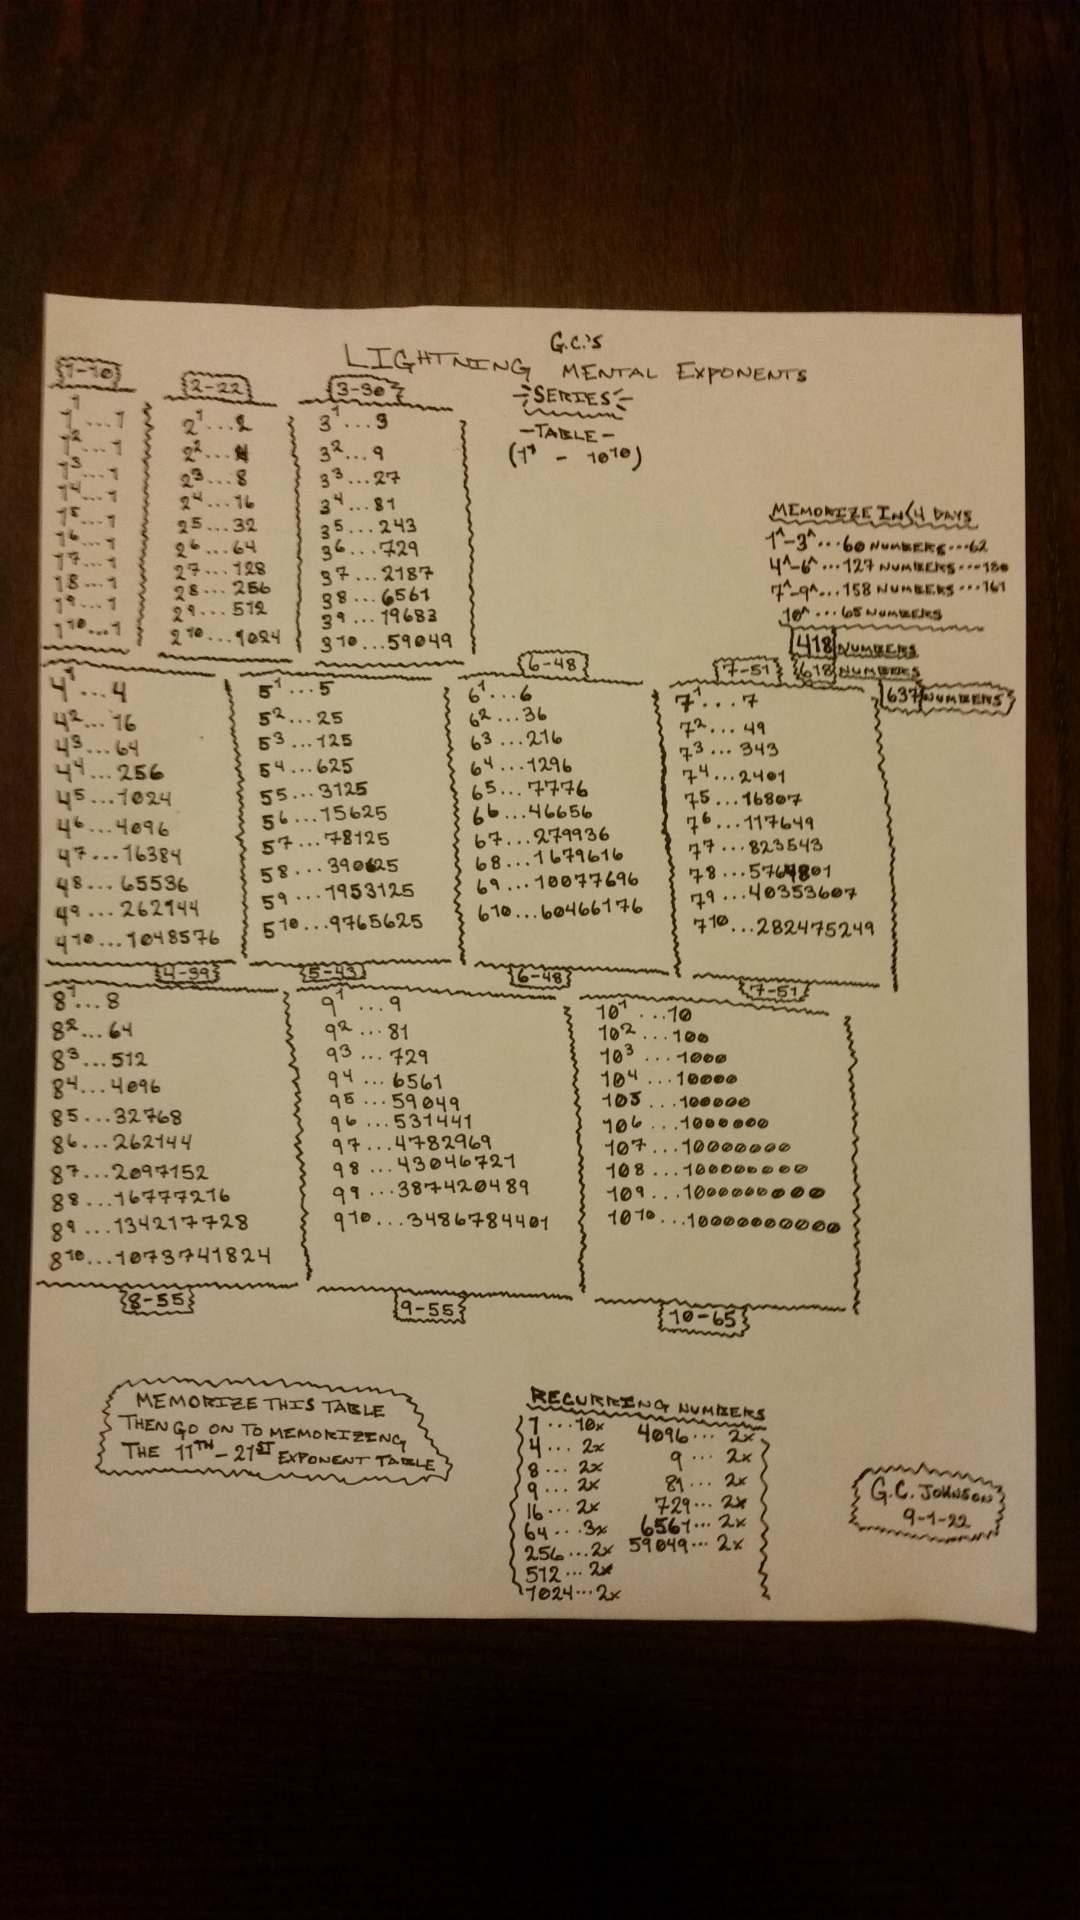 G.C.'S
LIGHTNING MENTAL EXPONENTS
SERIES
-TABLE-
(1¹ - 10¹⁰)
1-10
1¹...1
1²...1
1³...1
1⁴...1
1⁵...1
1⁶...1
1⁷...1
1⁸...1
1⁹...1
1¹⁰...1
2-22
2¹...2
2²...4
2³...8
2⁴...16
2⁵...32
2⁶...64
2⁷...128
2⁸...256
2⁹...512
2¹⁰...1024
3-30
3¹...3
3²...9
3³...27
3⁴...81
3⁵...243
3⁶...729
3⁷...2187
3⁸...6561
3⁹...19683
3¹⁰...59049
MEMORIZE IN 4 DAYS
1^-3^...60 NUMBERS...62
4^-6^...127 NUMBERS...130
7^-9^...158 NUMBERS...161
10^...65 NUMBERS
418 NUMBERS
618 NUMBERS
637 NUMBERS
4¹...4
4²...16
4³...64
4⁴...256
4⁵...1024
4⁶...4096
4⁷...16384
4⁸...65536
4⁹...262144
4¹⁰...1048576
4-39
5¹...5
5²...25
5³...125
5⁴...625
5⁵...3125
5⁶...15625
5⁷...78125
5⁸...390625
5⁹...1953125
5¹⁰...9765625
5-43
6-48
6¹...6
6²...36
6³...216
6⁴...1296
6⁵...7776
6⁶...46656
6⁷...279936
6⁸...1679616
6⁹...10077696
6¹⁰...60466176
6-48
7-51
7¹...7
7²...49
7³...343
7⁴...2401
7⁵...16807
7⁶...117649
7⁷...823543
7⁸...5764801
7⁹...40353607
7¹⁰...282475249
7-51
8¹...8
8²...64
8³...512
8⁴...4096
8⁵...32768
8⁶...262144
8⁷...2097152
8⁸...16777216
8⁹...134217728
8¹⁰...1073741824
8-55
9¹...9
9²...81
9³...729
9⁴...6561
9⁵...59049
9⁶...531441
9⁷...4782969
9⁸...43046721
9⁹...387420489
9¹⁰...3486784401
9-55
10¹...10
10²...100
10³...1000
10⁴...10000
10⁵...100000
10⁶...1000000
10⁷...10000000
10⁸...100000000
10⁹...1000000000
10¹⁰...10000000000
10-65
MEMORIZE THIS TABLE
THEN GO ON TO MEMORIZING
THE 11TH-21ST EXPONENT TABLE
RECURRING NUMBERS
1...10x
4...2x
8...2x
9...2x
16...2x
64...3x
256...2x
512...2x
1024...2x
4096...2x
9...2x
81...2x
729...2x
6561...2x
59049...2x
G.C. JOHNSON
9-1-22